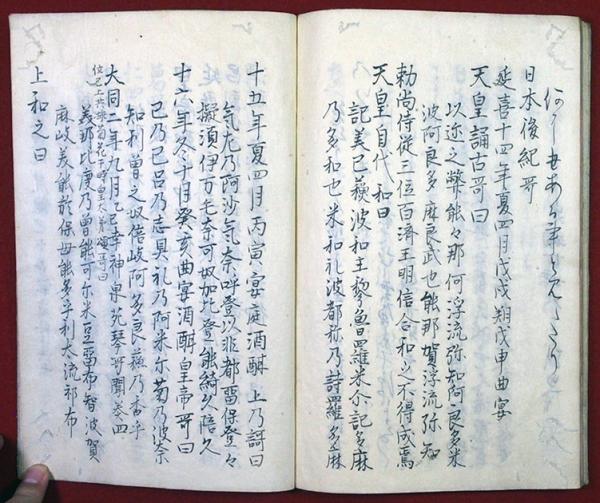 日本後紀哥
延喜十四年夏四月戊戌朔戊申曲宴
天皇誦古哥曰
以邇之弊能々那何浮流弥知阿良多米
波阿良多麻良武也能那賀浮流弥知
勅尚侍従三位百済王明信合和之不得成焉
天皇自代和曰
記美己穂波和主黎魯羅米尓記多麻
乃多和也米和礼波都祢乃詩羅多麻
十五年夏四月丙寅宴庭酒酣 上乃謌曰
気左乃阿沙気奈呼登以非都留保登々
擬須伊万毛奈可奴加比登能綺久陪久
十六年冬十月癸亥曲宴酒酣皇帝哥曰
己乃己呂乃志具礼乃阿米尓菊乃波奈
知利曽之奴倍岐阿多良蘇乃香乎
大同二年九月乙巳幸神泉苑琴哥間奏四
位已上共挿菊花于時皇太弟頌哥曰
美耶比度乃曽能可尓米豆留布智波賀
麻岐美能於保母能多乎利太流祁布
上和之曰